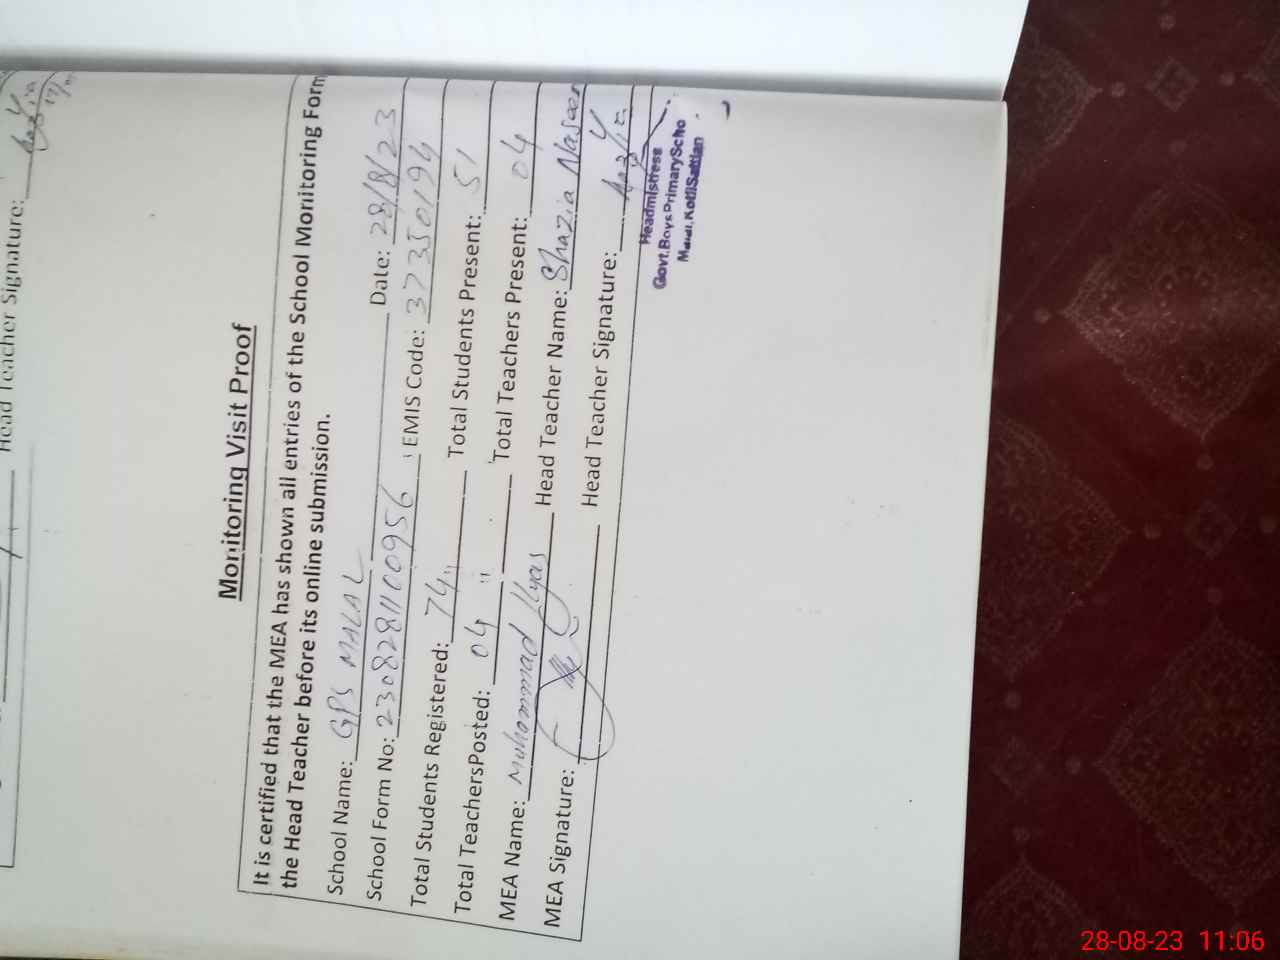 Head Teacher Signature:
Monitoring Visit Proof
It is certified that the MEA has shown all entries of the School Monitoring Form
the Head Teacher before its online submission.
School Name: GPS MALAL Date: 28/8/23
School Form No: 2308281100956 EMIS Code: 37350194
Total Students Registered: 74 Total Students Present: 51
Total TeachersPosted: 04 Total Teachers Present: 04
MEA Name: Muhammad Ilyas Head Teacher Name: Shazia Naseer
MEA Signature: Head Teacher Signature:
Headmistress
Govt.Boys PrimaryScho
KotliSattian
28-08-23 11:06